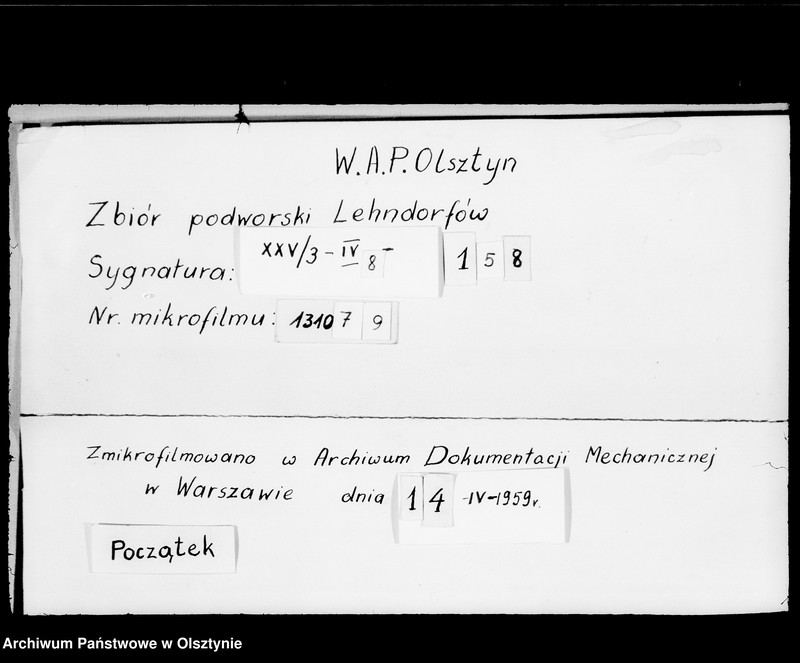 W.A.P. Olsztyn
Zbiór podworski Lehndorfów
Sygnatura: XXV/3 - IV 8 - 158
Nr. mikrofilmu: 131079
Zmikrofilmowano w Archiwum Dokumentacji Mechanicznej
w Warszawie dnia 14 -IV-1959r.
Początek
Archiwum Państwowe w Olsztynie